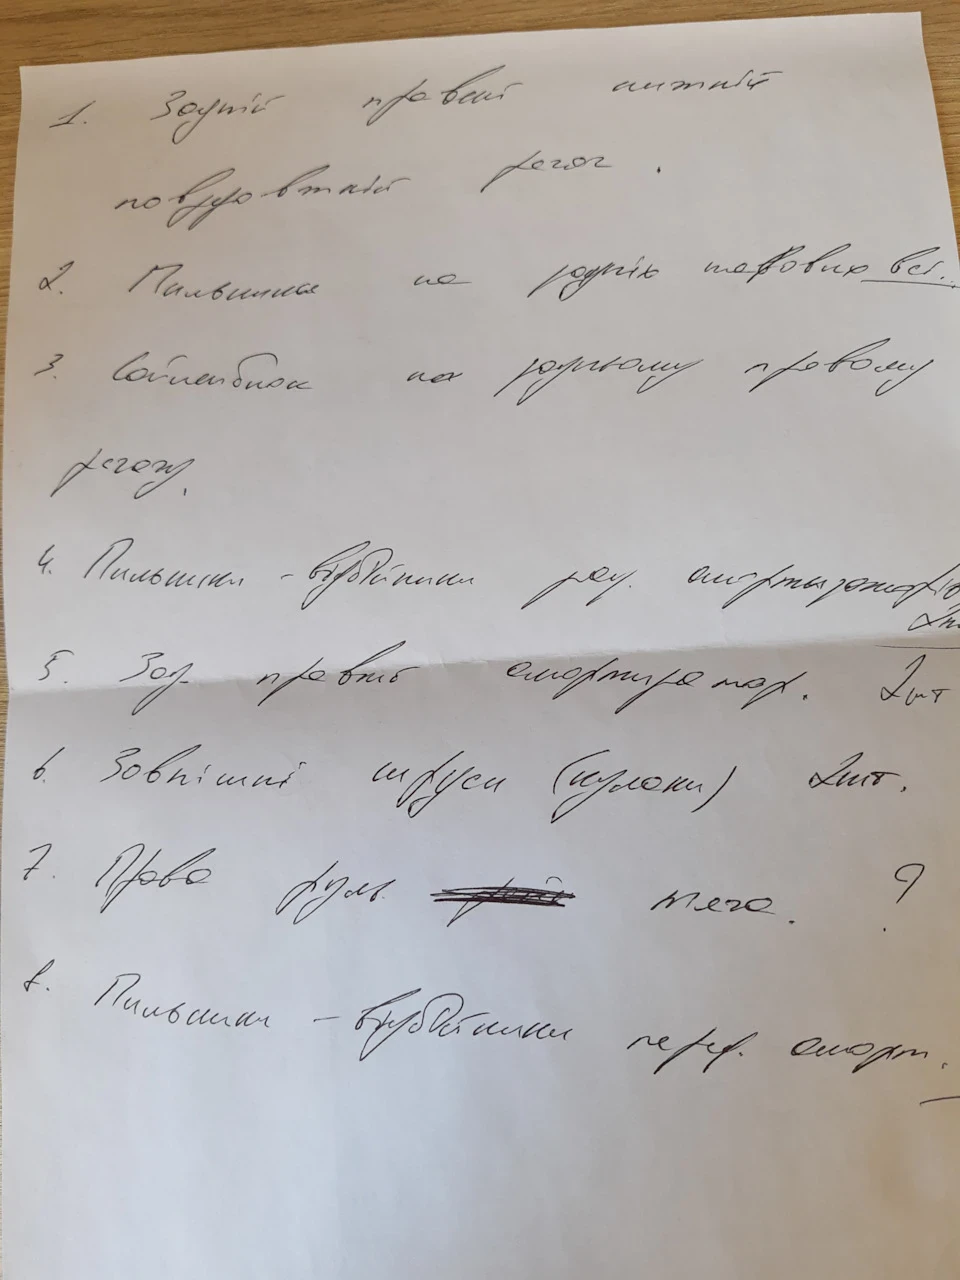 1. Задній правий нижній
повздовжній речаг.
2. Пильники на задніх шаровых всі.
3. Сайлентблок на задньому правому
речагу.
4. Пильники - відбійники зад. амортизаторів
2шт
5. Зад. правий амортизатор. 2шт
6. Зовнішні шруси (кулаки) 2шт.
7. Права руль. тяга. ?
8. Пильники - відбійники перед. аморт.